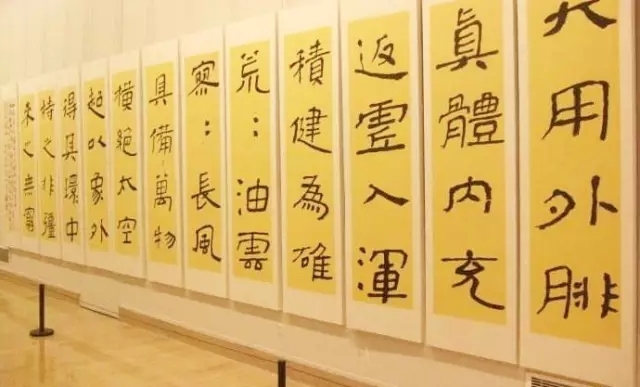 大用外腓
眞體內充
返虛入渾
積健為雄
荒：油雲
寥：長風
具備萬物
橫絕太空
超以象外
得其環中
持之非彊
來之無窮